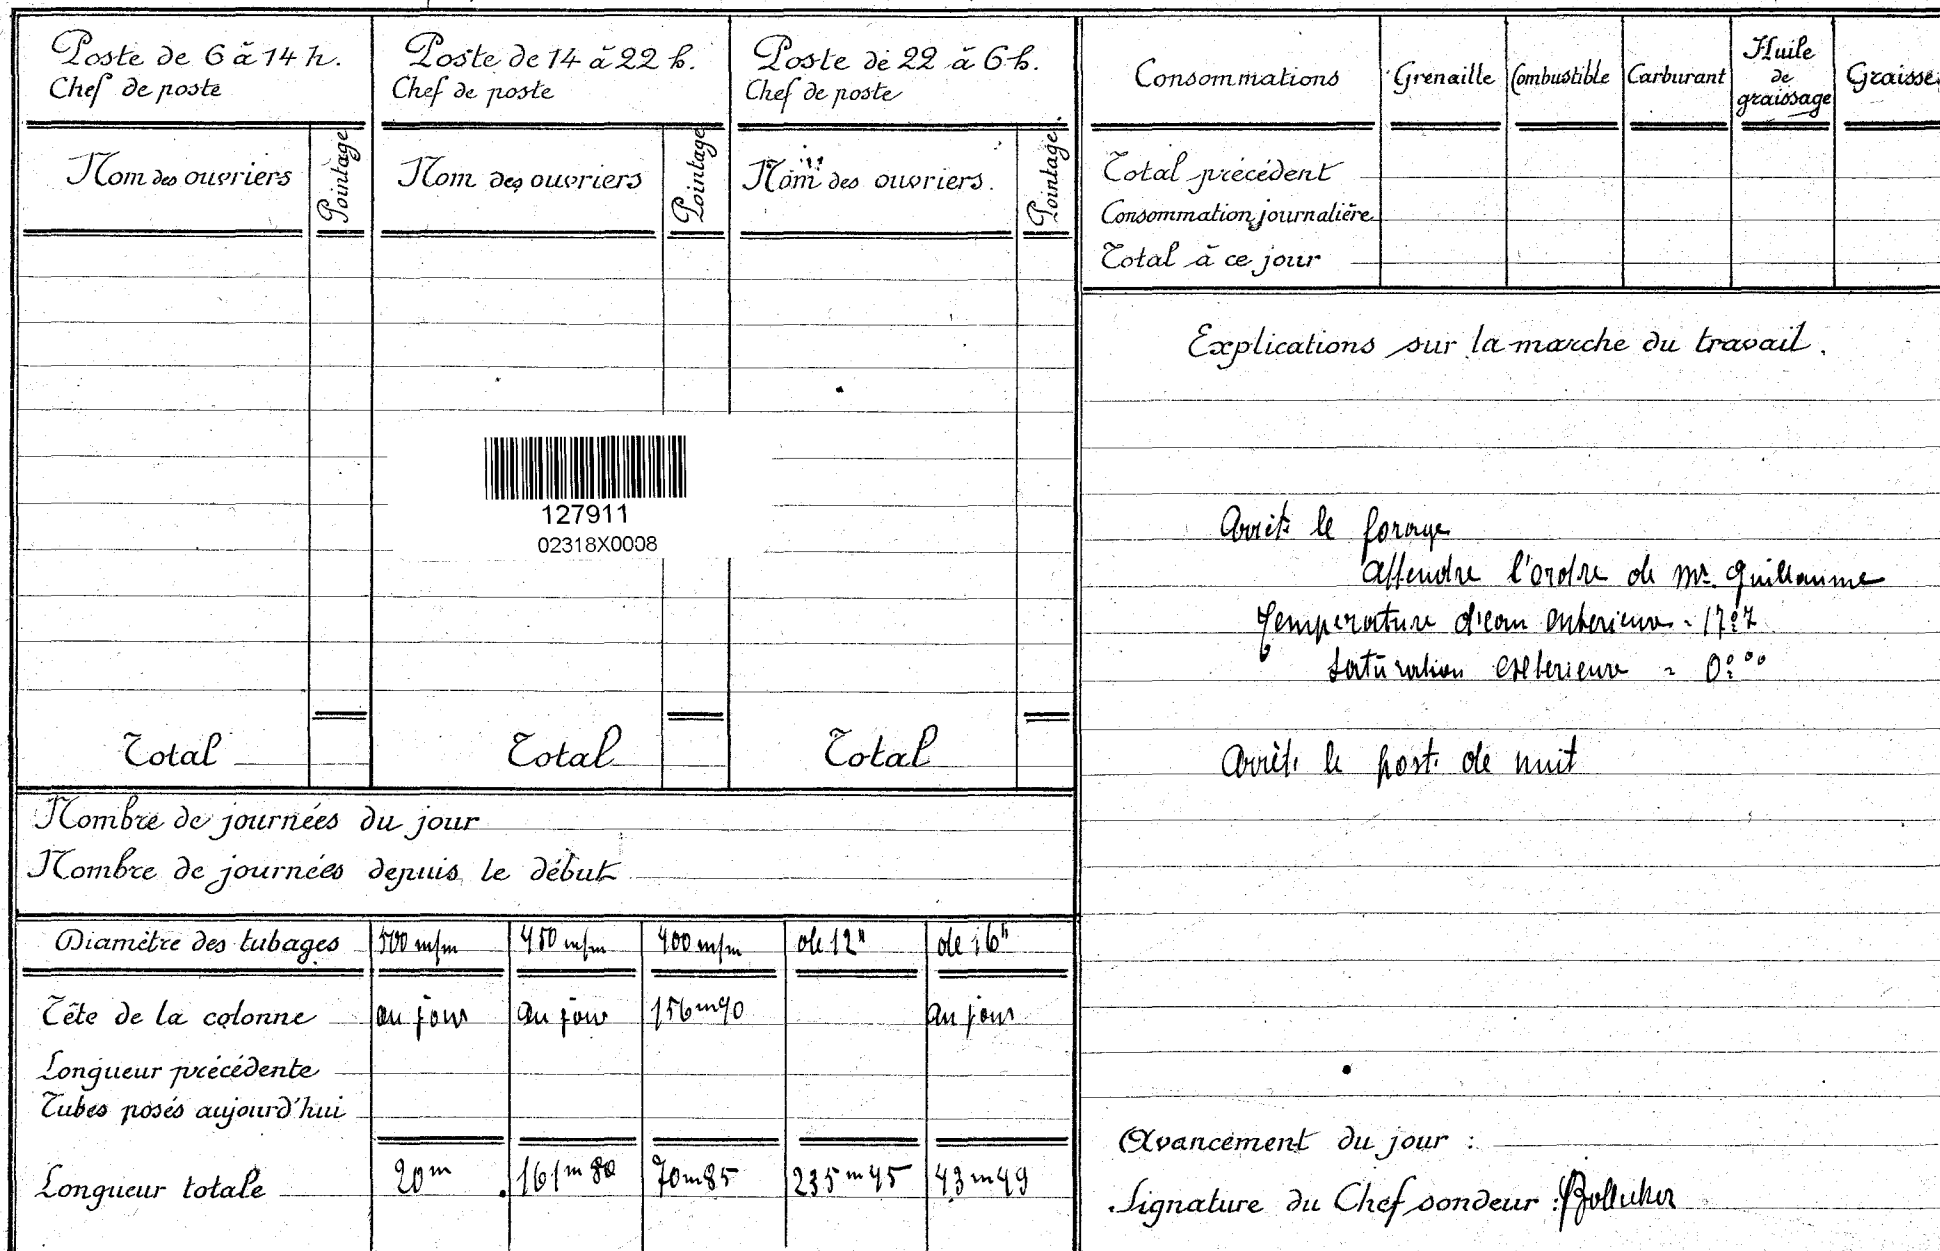 Poste de 6 à 14 h.
Chef de poste
Nom des ouvriers
Pointage
Total
Poste de 14 à 22 h.
Chef de poste
Nom des ouvriers
Pointage
Total
Poste de 22 à 6 h.
Chef de poste
Nom des ouvriers.
Pointage.
Total
127911
02318X0008
Nombre de journées du jour
Nombre de journées depuis le début
Diamètre des tubages 500 m/m 450 m/m 400 m/m de 12" de 16"
Tête de la colonne au jour au jour 156m90 au jour
Longueur précédente
Tubes posés aujourd'hui
Longueur totale 20m 161m80 70m85 235m45 43m49
Consommations Grenaille Combustible Carburant Huile de graissage Graisse
Total précédent
Consommation journalière
Total à ce jour
Explications sur la marche du travail.
Arrêt le forage
attendre l'ordre de Mr Guillaume
Temperature d'eau - 17°7
saturation exterieure = 0°00
Arrêt le post de nuit
Avancement du jour :
Signature du Chef sondeur :